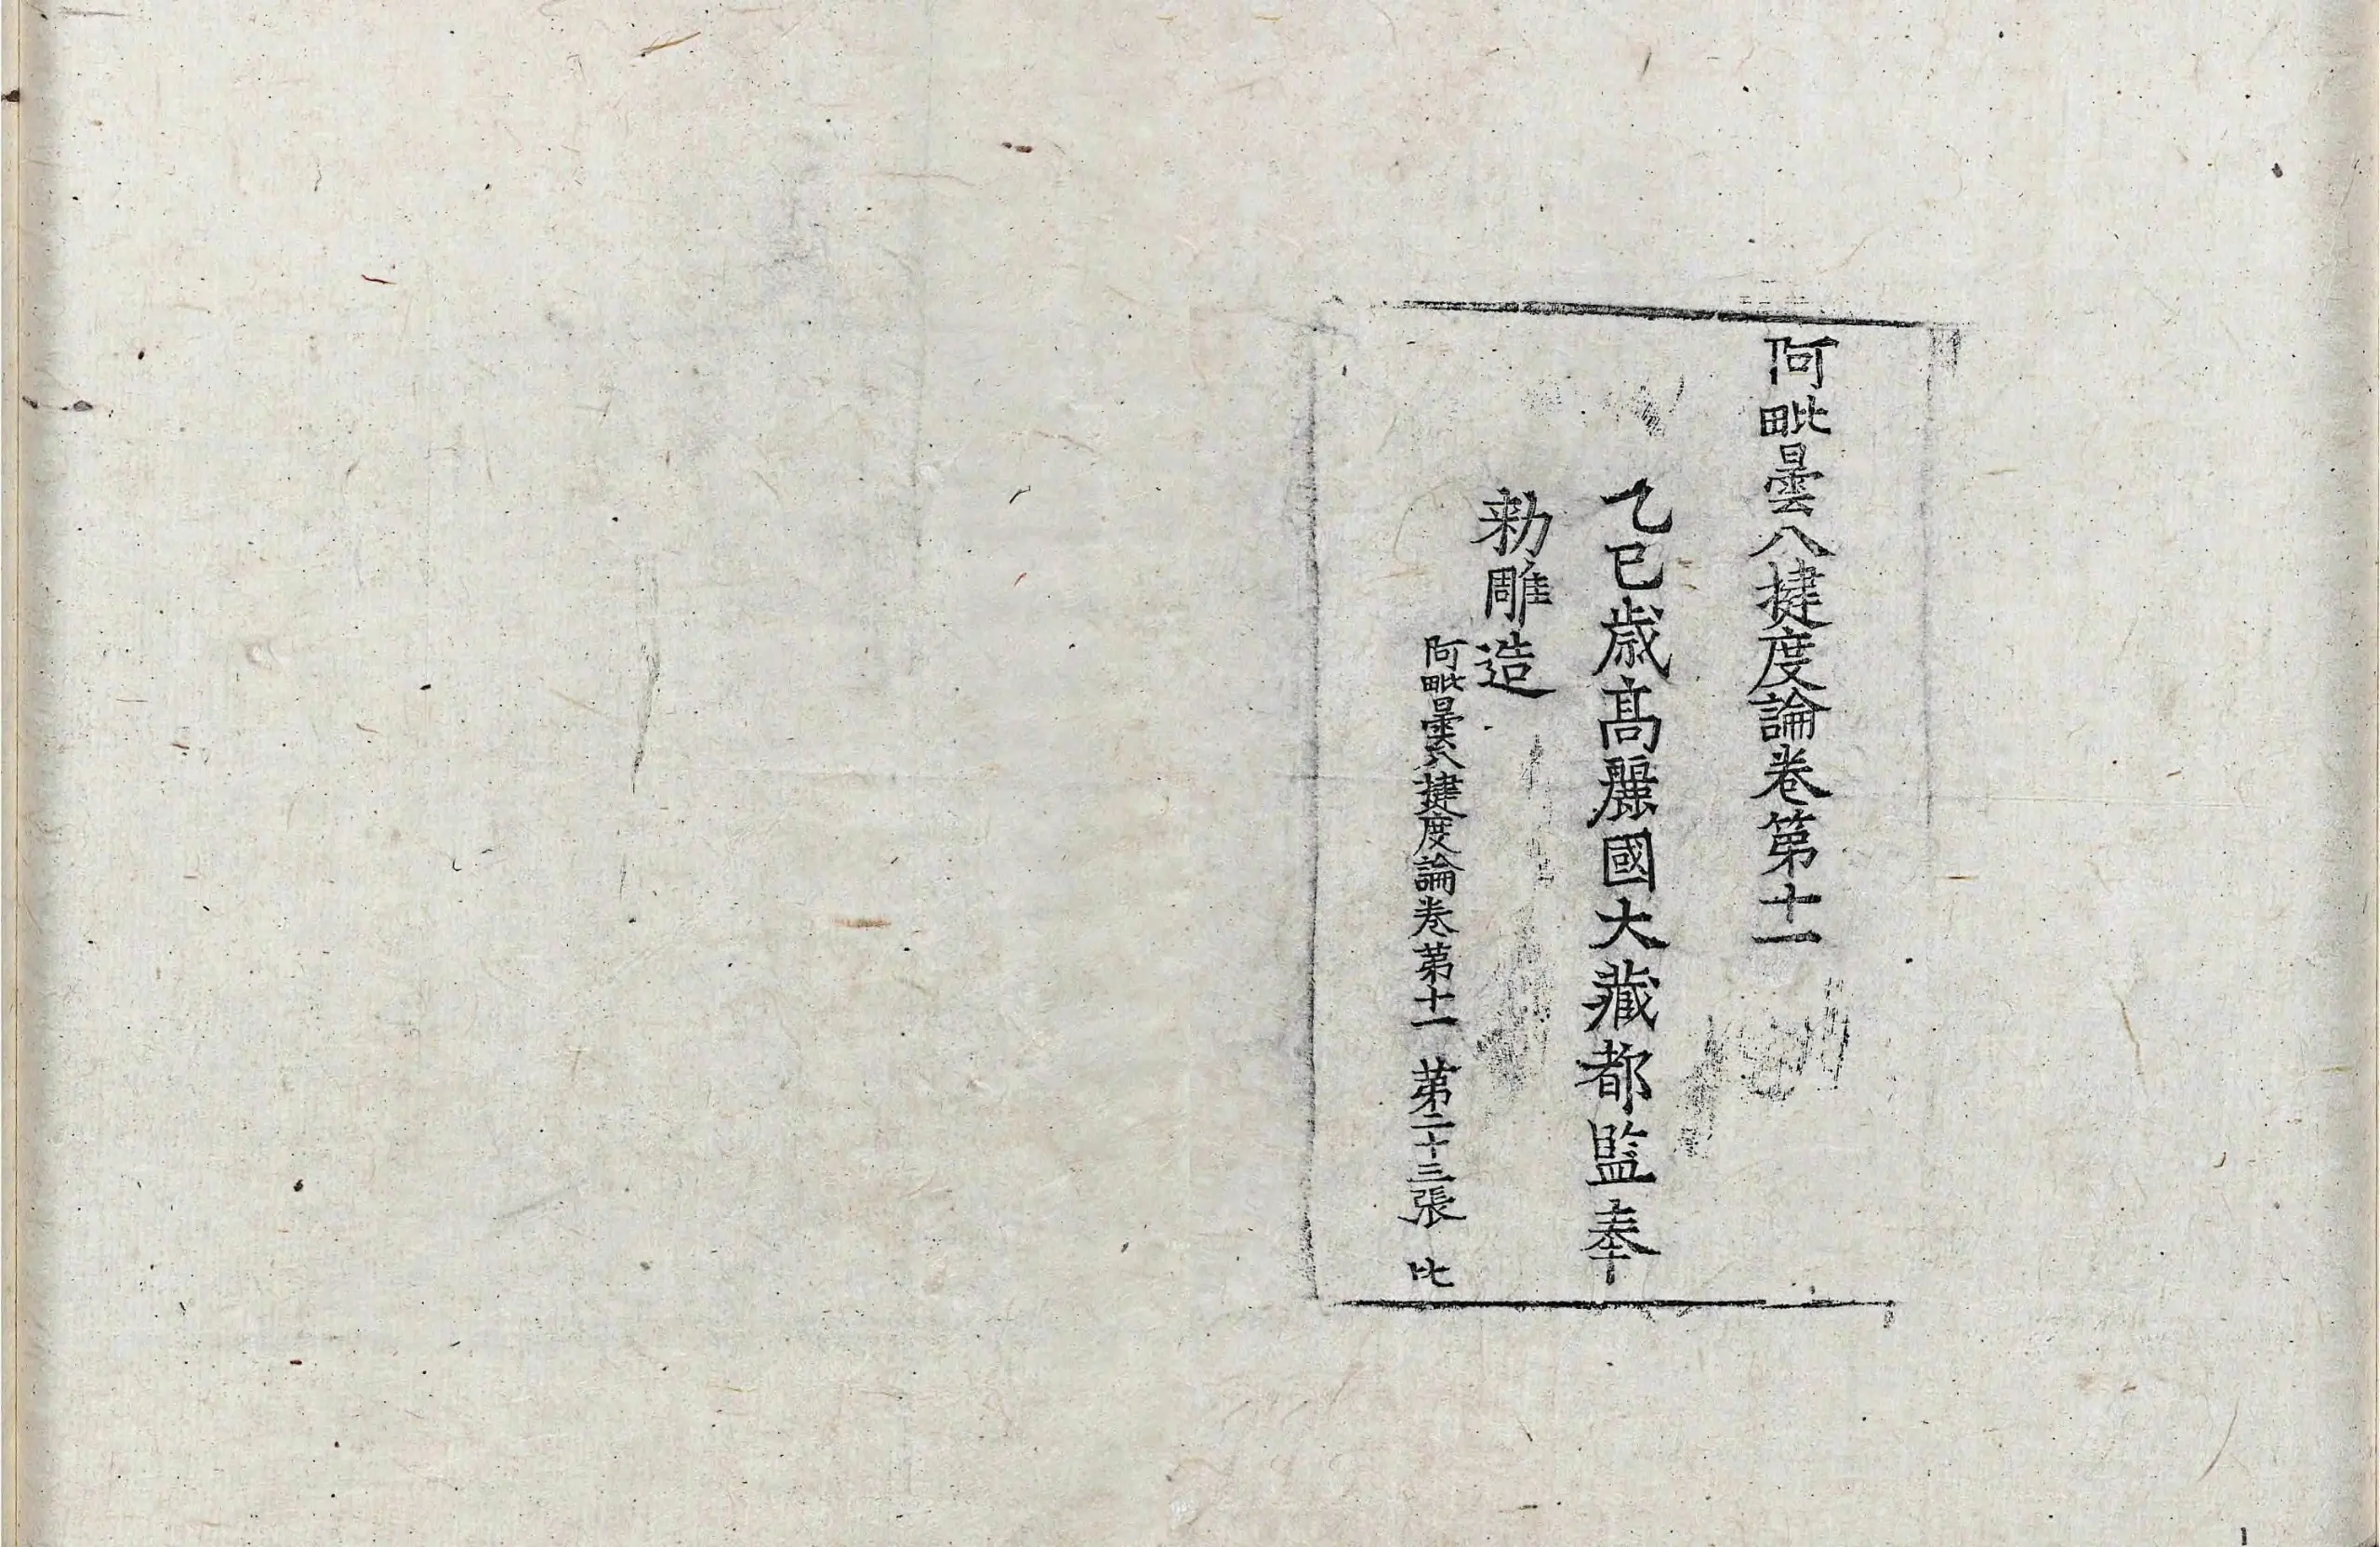 阿毗曇八揵度論卷第十一
乙巳歲高麗國大藏都監奉
勑雕造
阿毗曇八揵度論卷第十一 第二十三張 比